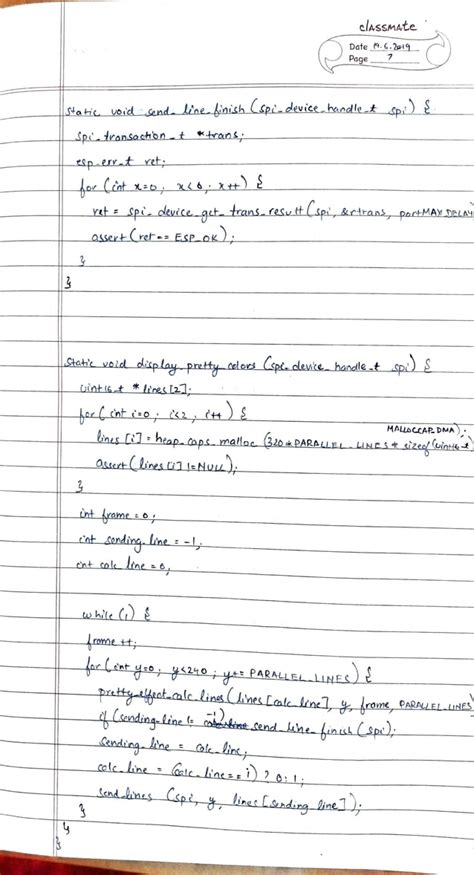 classmate
Date 19.6.2019
Page 7
static void send_line_finish (spi_device_handle_t spi) {
spi_transaction_t *rtrans;
esp_err_t ret;
for (int x=0; x<6; x++) {
ret = spi_device_get_trans_result (spi, &rtrans, portMAX_DELAY
assert (ret == ESP_OK);
}
}
static void display_pretty_colors (spi_device_handle_t spi) {
uint16_t *lines[2];
for (int i=0; i<2; i++) {
MALLOCCAP_DMA);
lines [i] = heap_caps_malloc (320 * PARALLEL_LINES * sizeof (uint16_t)
assert (lines [i] != NULL);
}
int frame = 0;
int sending_line = -1;
int calc_line = 0;
while (1) {
frame ++;
for (int y=0; y<240; y+= PARALLEL_LINES) {
pretty_effect_calc_lines (lines [calc_line], y, frame, PARALLEL_LINES)
if (sending_line != -1) send_line_finish (spi);
sending_line = calc_line;
calc_line = (calc_line == 1) ? 0 : 1;
send_lines (spi, y, lines [sending_line]);
}
}
}